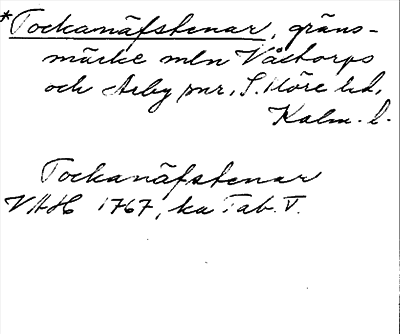 *Tockanäfstenar, gräns-
märke mln Våtorps
och Arby snr, S. Möre hd,
Kalm. l.
Tockanäfstenar
VAH 1767, ka Tab. V.